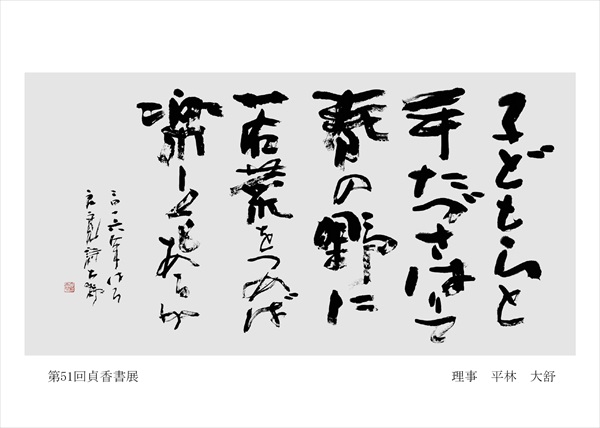 子どもらと
手たづさはりて
春の野に
若菜をつめば
樂しくもあるか
二〇一六年はる
良寛詩 大舒
第51回貞香書展
理事　平林　大舒